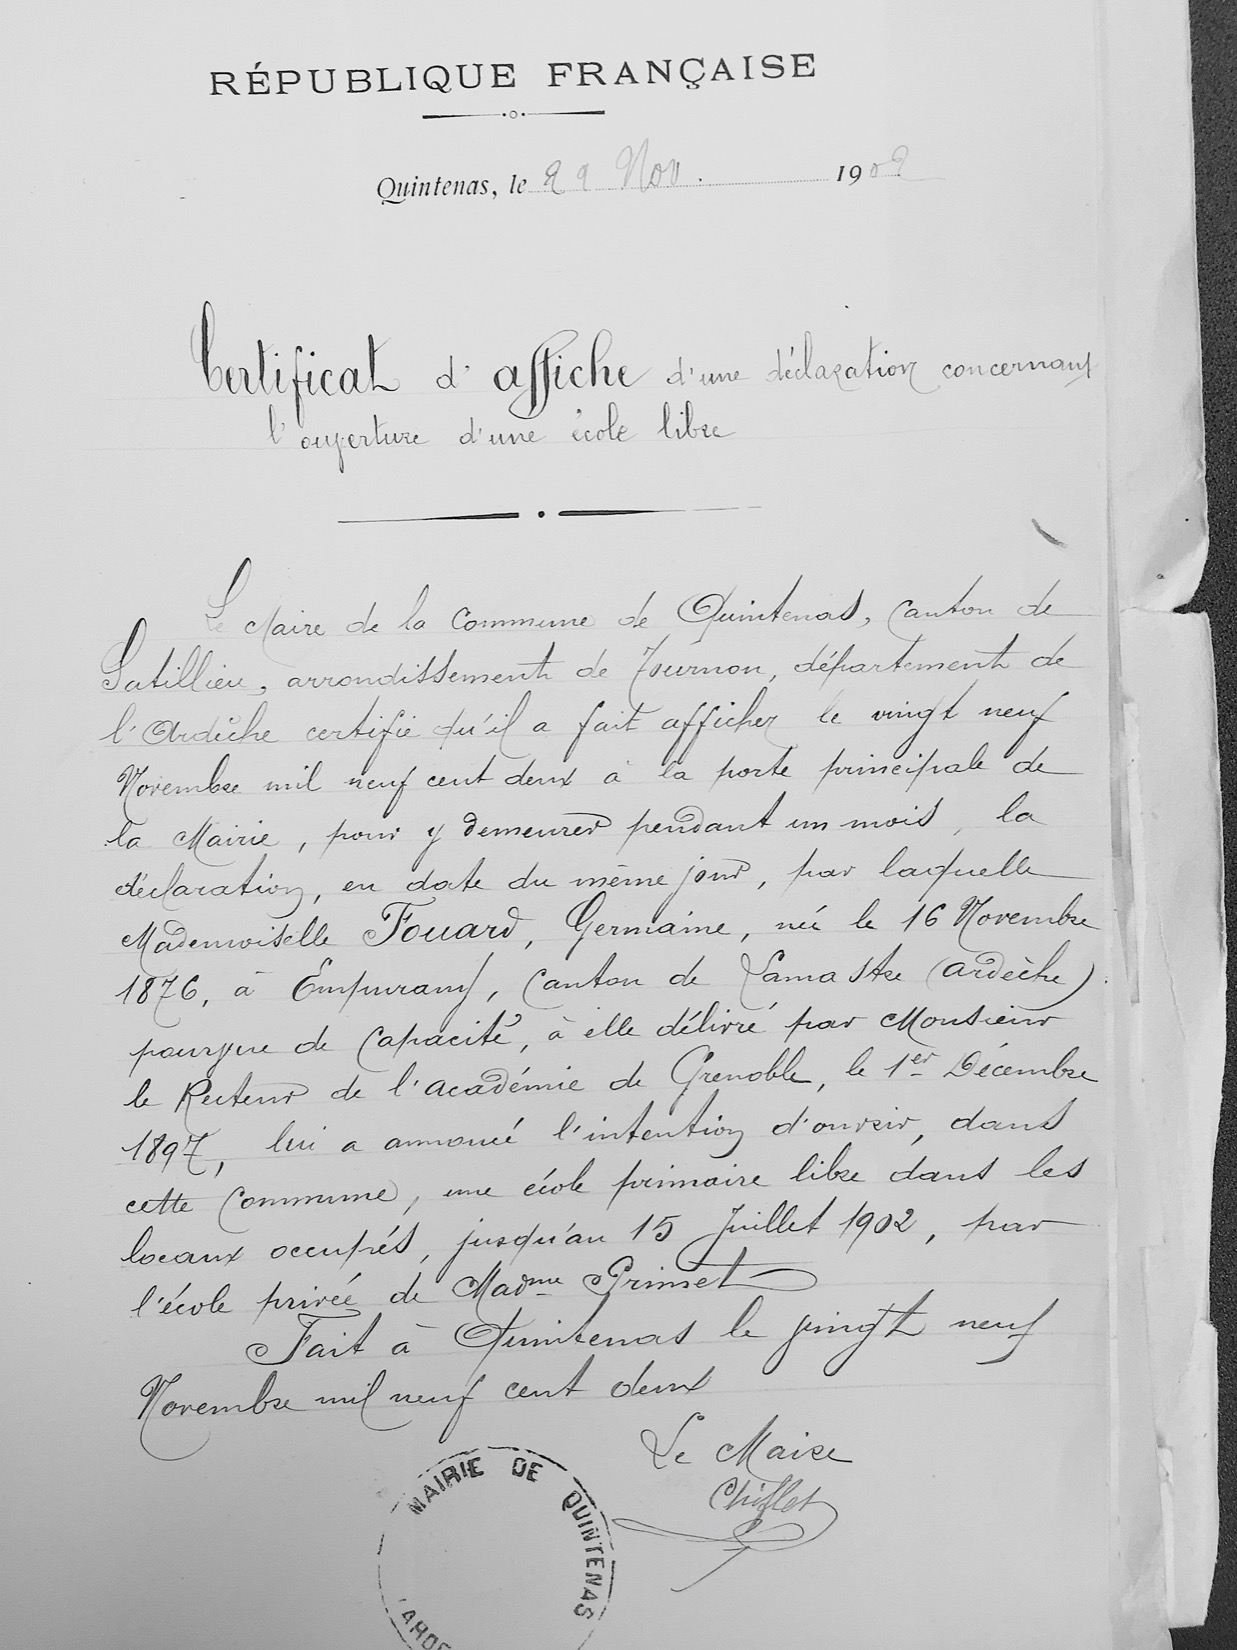 RÉPUBLIQUE FRANÇAISE
Quintenas, le 29 Nov. 1902
Certificat d'affiche d'une déclaration concernant
l'ouverture d'une école libre
Le Maire de la Commune de Quintenas, Canton de
Satillieu, arrondissement de Tournon, département de
l'Ardèche certifie qu'il a fait afficher le vingt neuf
Novembre mil neuf cent deux à la porte principale de
la Mairie, pour y demeurer pendant un mois, la
déclaration, en date du même jour, par laquelle
Mademoiselle Fouard, Germaine, née le 16 Novembre
1876, à Empurany, Canton de Lamastre (Ardèche)
pourvue de Capacité, à elle délivré par Monsieur
le Recteur de l'académie de Grenoble, le 1er Décembre
1897, lui a annoncé l'intention d'ouvrir, dans
cette Commune, une école primaire libre dans les
locaux occupés, jusqu'au 15 Juillet 1902, par
l'école privée de Madme Primet
Fait à Quintenas le vingt neuf
Novembre mil neuf cent deux
Le Maire
Chifflet
MAIRIE DE QUINTENAS